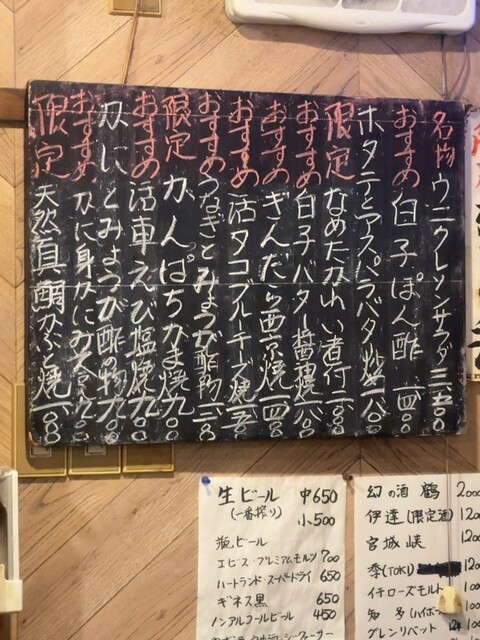 名物 ウニクレソンサラダ 三、五〇〇
おすすめ 白子ぽん酢 一、四〇〇
ホタテとアスパラバター焼 一、八〇〇
限定 なめたかれい煮付
おすすめ 白子バター醤油焼 一、八〇〇
おすすめ ぎんだら西京焼 一、四〇〇
おすすめ 活タコブルーチーズ焼
おすすめ うなぎとみょうが酢物
限定 かんぱちかま焼 九〇〇
おすすめ 活車えび塩焼 九〇〇
かにとみょうが酢の物 九〇〇
おすすめ かに身かにみそ
限定 天然真鯛かぶと焼 一、八〇〇
生ビール 中650
(一番搾り) 小500
瓶ビール
エビス・プレミアムモルツ 700
ハートランド・スーパードライ 650
ギネス黒 650
ノンアルコールビール 450
幻の酒 鶴 2000
伊達(限定酒) 120
宮城峡 120
季(TOKI)
イチローズモルト
知多(ハイボ
グレンリベット